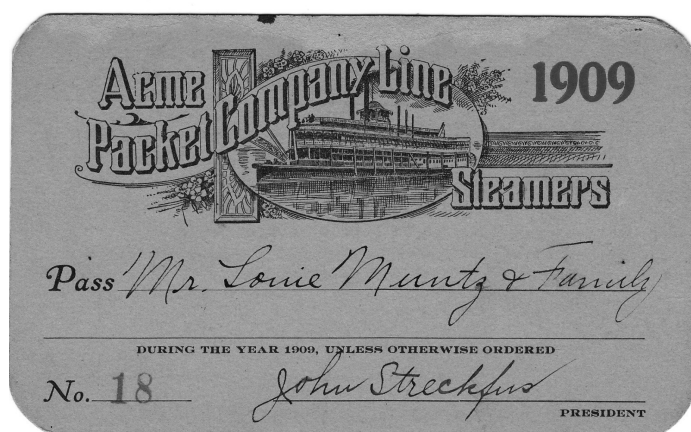 Acme Packet Company Line Steamers
1909
Pass Mr. Louie Muntz & Family
DURING THE YEAR 1909, UNLESS OTHERWISE ORDERED
No. 18 John Streckfus
PRESIDENT